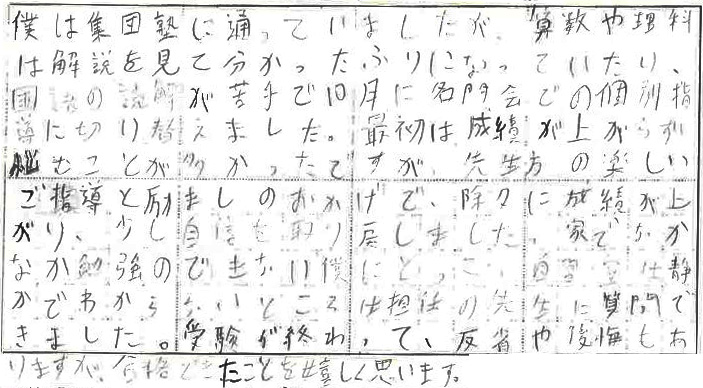 僕は集団塾に通っていましたが、算数や理科
は解説を見て分かったふりになっていたり、
国語の読解が苦手で10月に名門会での個別指
導に切り替えました。最初は成績が上がらず
悩むことが多かったですが、先生方の楽しい
ご指導と励ましのおかげで、除々に成績が上
がり、少し自信を取り戻しました。家で
なか勉強のできない僕にとって、自習室は静
かでわからないところは担任の先生に質問で
きました。受験が終わって、反省や後悔もあ
りますが、合格できたことを嬉しく思います。